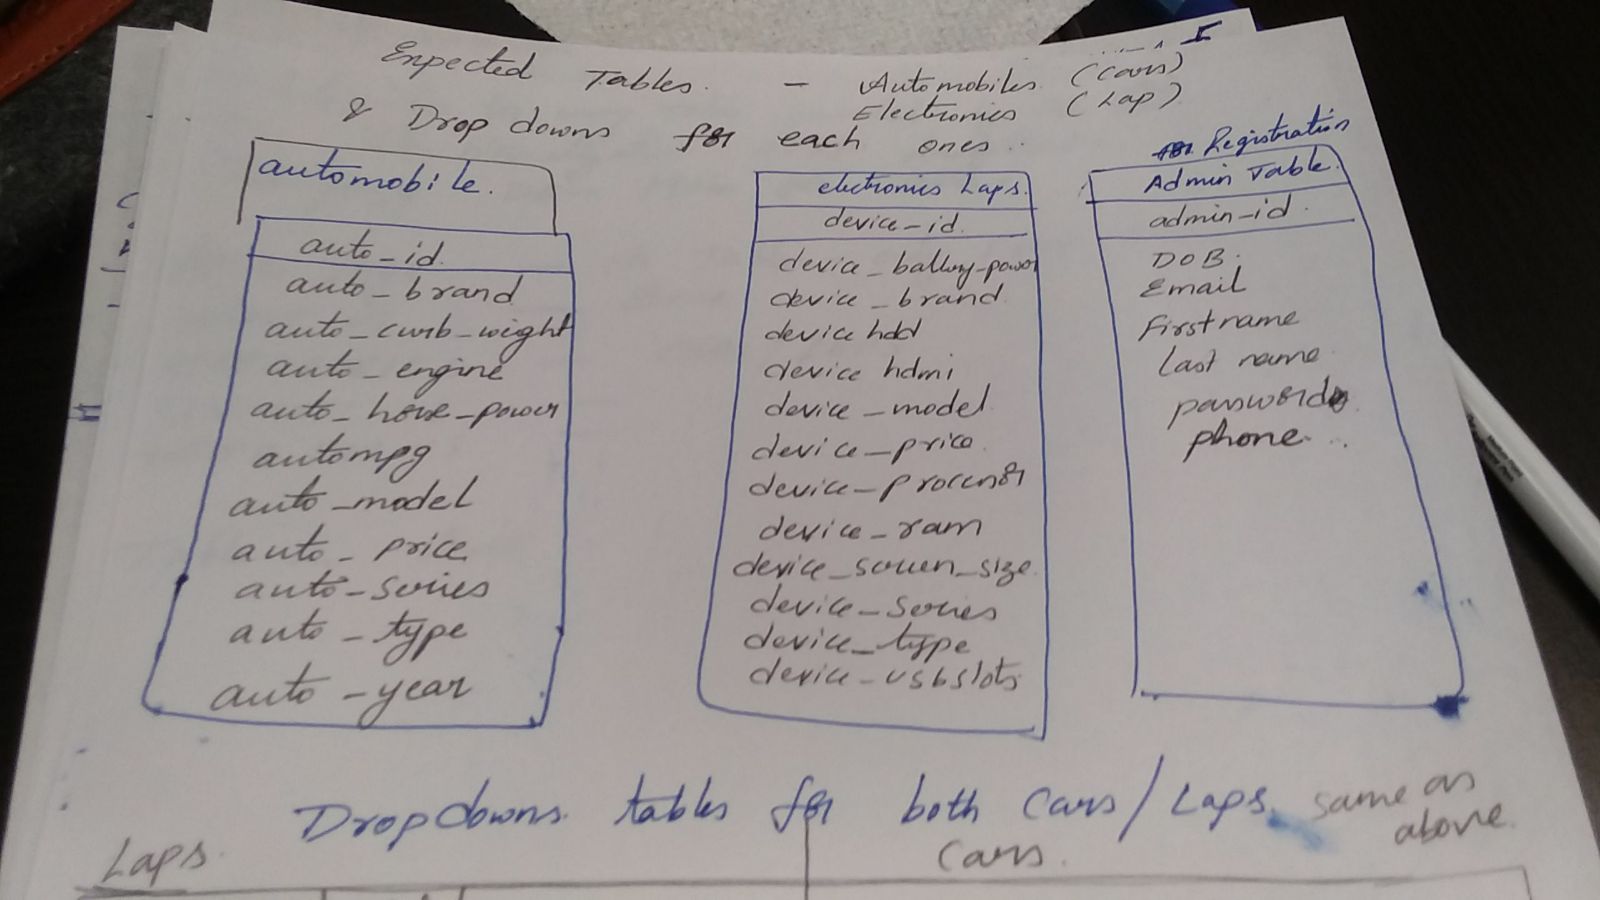 Expected Tables. - Automobiles (Cars)
Electronics (Lap)
& Drop downs for each ones..
automobile.
auto_id.
auto_brand
auto_curb_wight
auto_engine
auto_horse_power
autompg
auto_model
auto_price
auto_series
auto_type
auto_year
electronics Laps.
device_id.
device_battery_power
device_brand.
device hdd
device hdmi
device_model.
device_price.
device_processor
device_ram
device_screen_size.
device_series
device_type
device_usbslots
for Registration
Admin Table.
admin-id.
DOB.
Email
First name
Last name
password
phone...
Dropdowns. tables for both Cars/Laps. same as above.
Laps.
Cars.